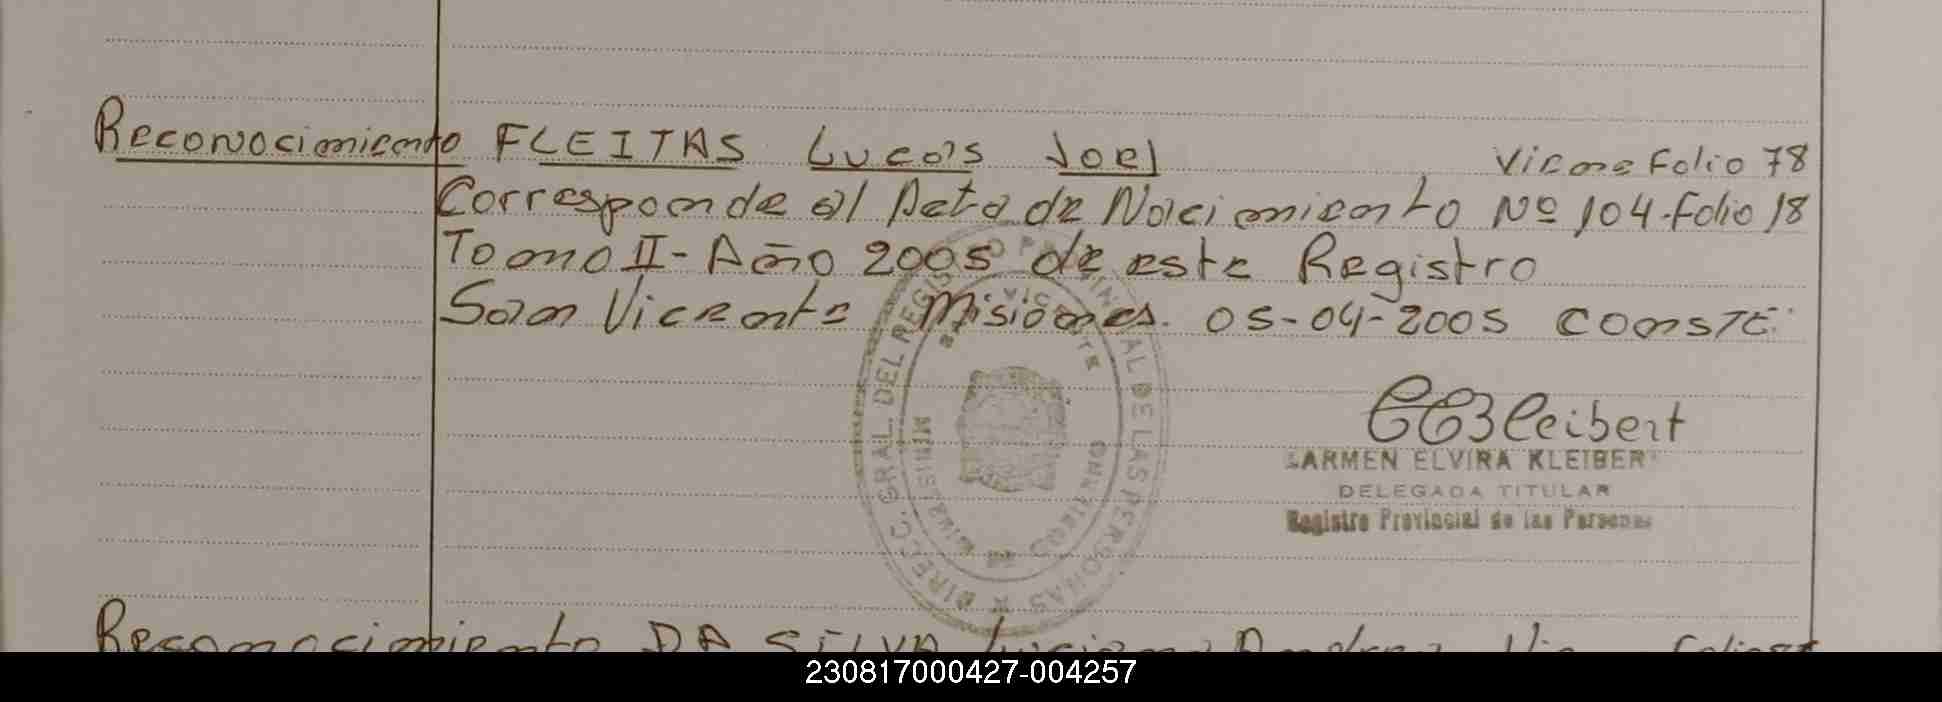 Reconocimiento FLEITAS Lucas Joel Viene Folio 78
Corresponde al Acta de Nacimiento Nº 104-Folio 18
Tomo II- Año 2005 de este Registro
San Vicente Misiones. 05-04-2005 CONSTE.
DIREC. GRAL. DEL REGISTRO PROVINCIAL DE LAS PERSONAS
VICENTE
CEKleibert
CARMEN ELVIRA KLEIBERT
DELEGADA TITULAR
Registro Provincial de las Personas
Reconocimiento DA SILVA Andrea Folio
230817000427-004257